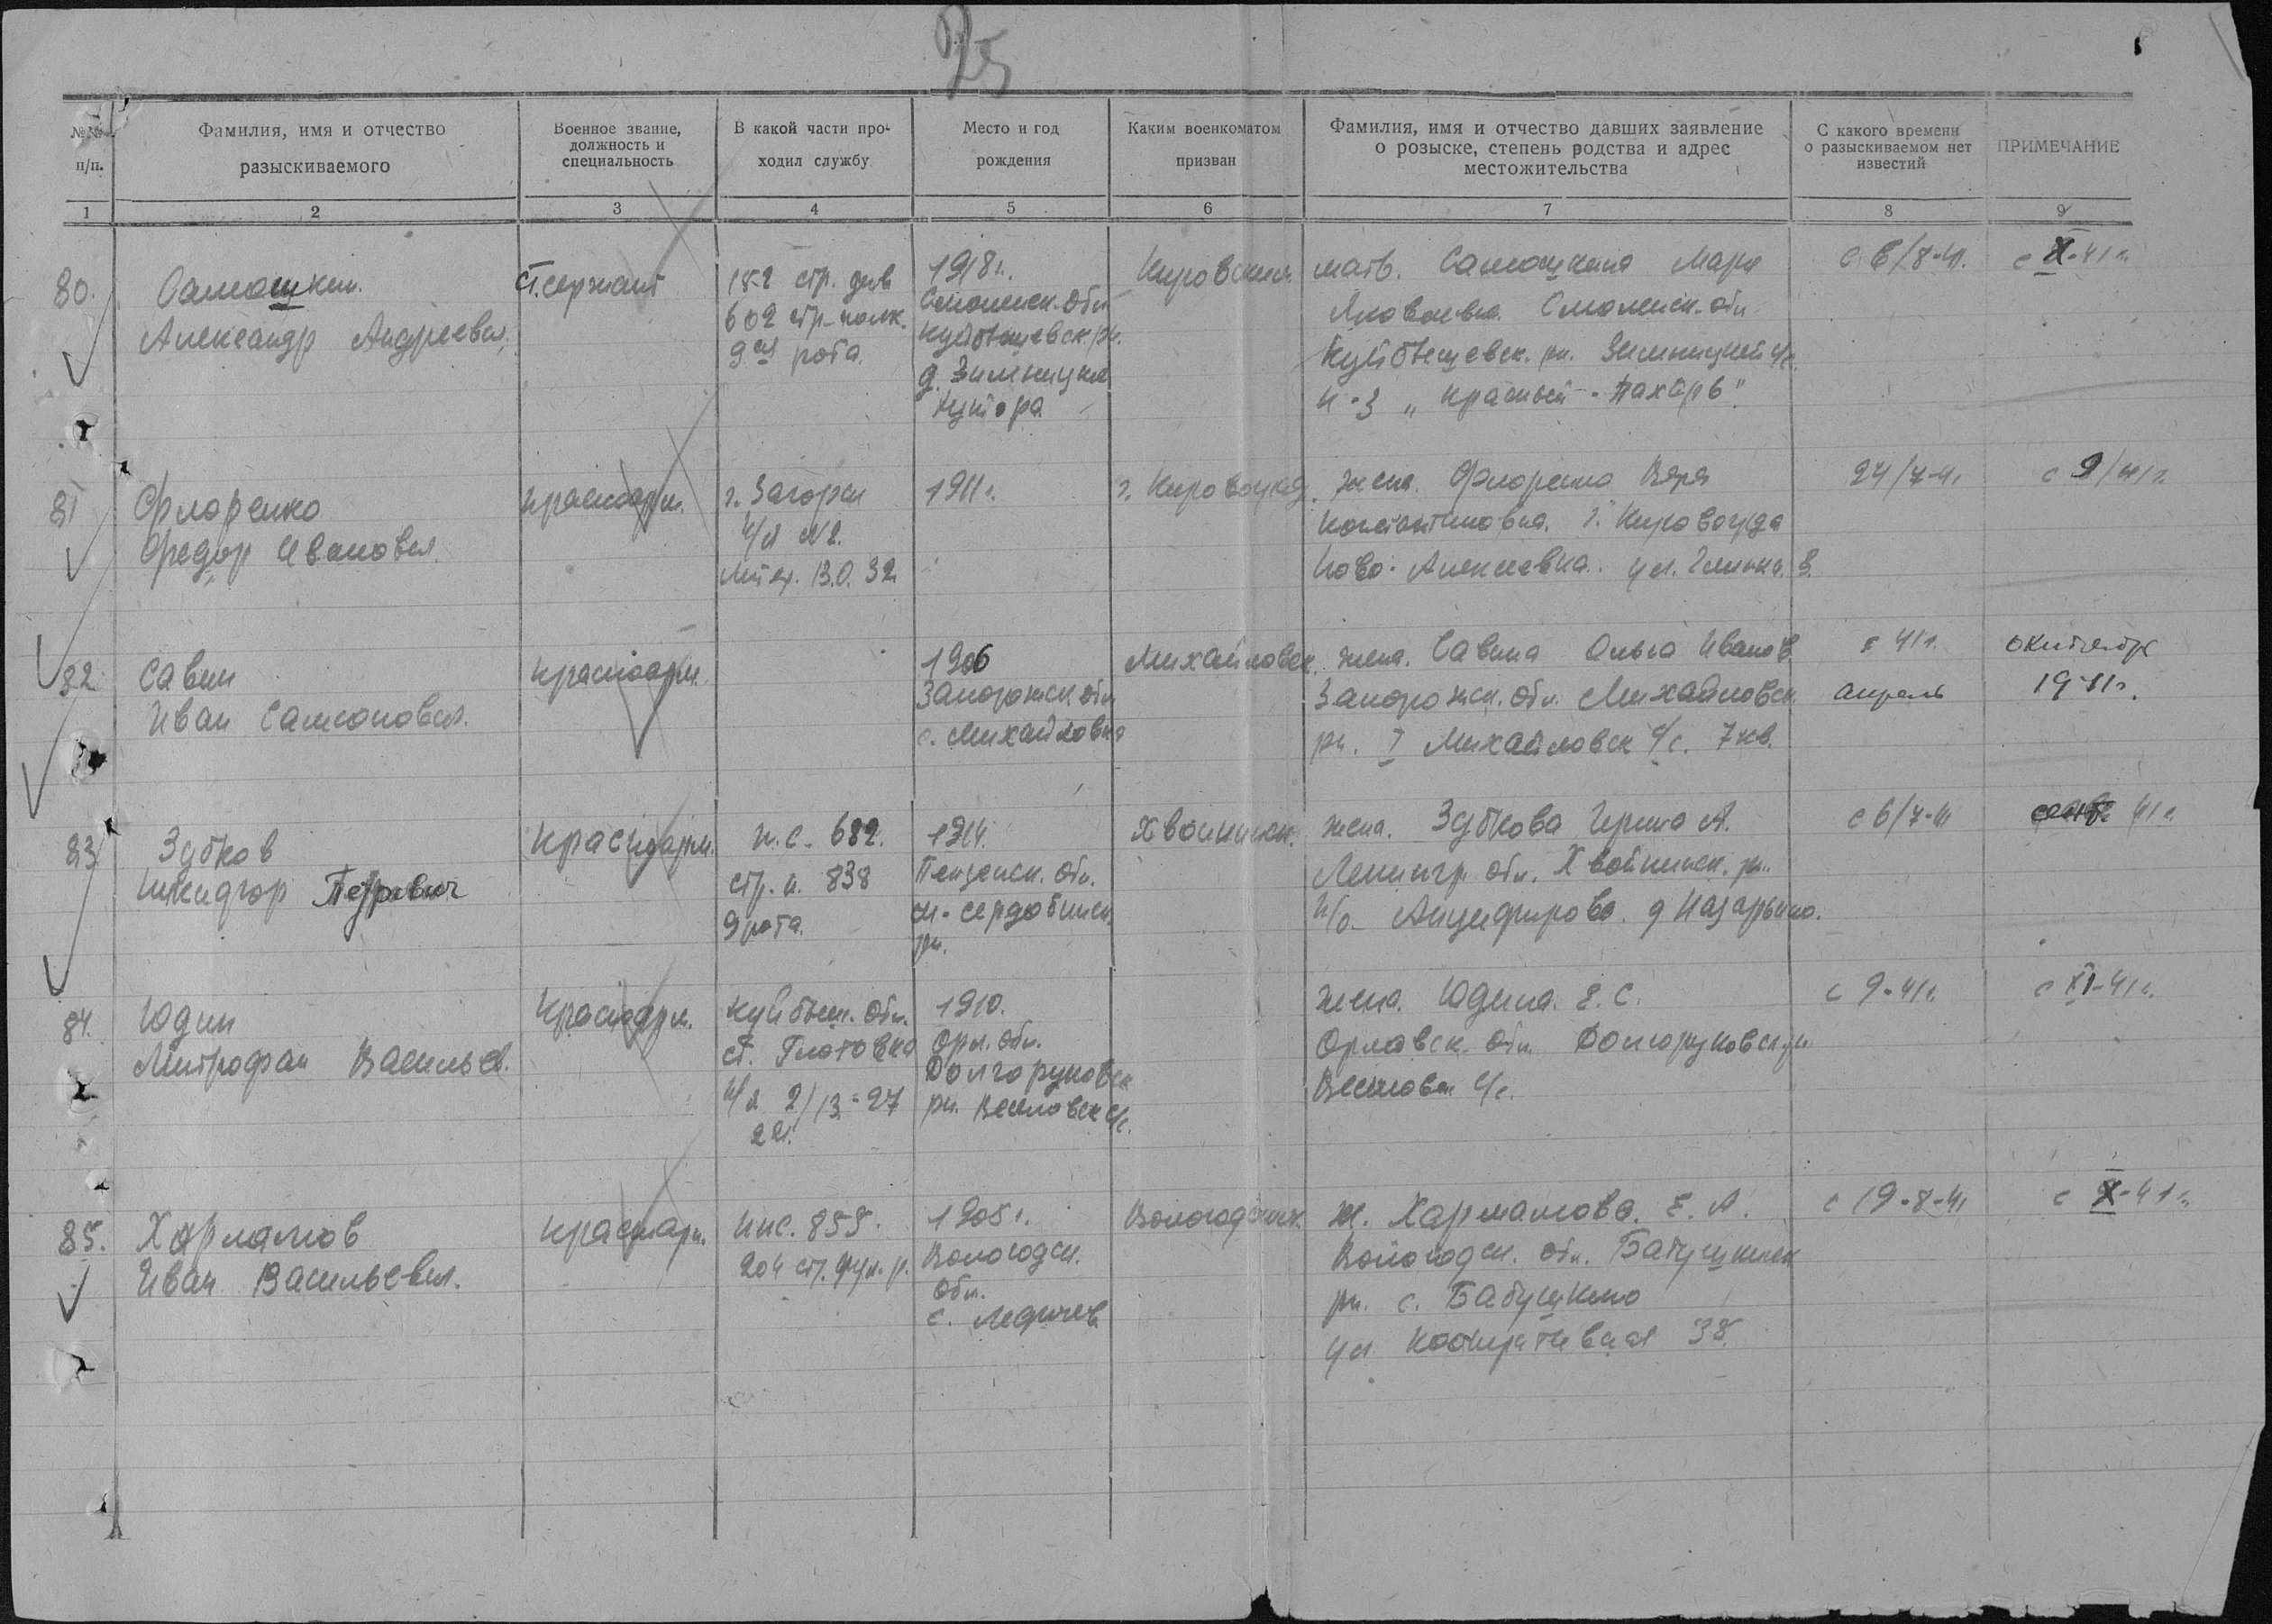 25
№№ п/п.
Фамилия, имя и отчество разыскиваемого
Военное звание, должность и специальность
В какой части проходил службу
Место и год рождения
Каким военкоматом призван
Фамилия, имя и отчество давших заявление о розыске, степень родства и адрес местожительства
С какого времени о разыскиваемом нет известий
ПРИМЕЧАНИЕ
1 2 3 4 5 6 7 8 9
80.
Самошкин
Александр Андреевич
ст. сержант
152 стр. див
602 стр-полк.
9ая рота.
1918 г.
Смоленск. обл
Куйбышевск. рн.
д. Зимницкие
хутора
Кировским
мать. Самошкина Мария
Яковлевна. Смоленск. обл
Куйбышевск. рн. Зимницкий с/с.
к-з „Красный-Пахарь"
с 6/8-41.
с X-41 г.
81
Флоренко
Федор Иванович
красноарм.
г. Загорск
п/я №2.
Литер. В.О. 32
1911 г.
г. Кировоград.
жена. Флоренко Вера
Константиновна. г. Кировоград
Ново-Алексеевка. ул. Глинки 8.
24/7-41
с 9/41 г.
82
Савин
Иван Самсонович.
красноарм.
1906
Запорожск. обл
с. Михайловка
Михайловск.
жена. Савина Ольга Иванов.
Запорожск. обл. Михайловск.
рн. I Михайловск с/с. 7 кв.
с 41 г.
апрель
октябрь
1941 г.
83
Зубков
Никифор Петрович
красноарм.
п.с. 682.
стр. п. 838
9 рота.
1914.
Пензенск. обл.
М-сердобинск.
рн.
Хвойнинск.
жена. Зубкова Ирина А.
Ленингр. обл. Хвойнинск. рн.
п/о. Анциферово. д Назарьино.
с 6/7-41
41 г.
84.
Юдин
Митрофан Васильев.
красноарм.
Куйбыш. обл.
ст. Глотовка
п/я 2/13-27
1910.
Орл. обл.
Долгоруковск
рн. Веселовск с/с.
жена. Юдина. Е. С.
Орловск. обл. Долгоруковск рн
Веселовск с/с.
с 9-41 г.
с XI-41 г.
85.
Харламов
Иван Васильевич.
красноарм.
ппс. 855.
204 стр.
1905 г.
Вологодск.
обл.
с. Леденгск
Вологодским.
ж. Харламова. Е. А.
Вологодск. обл. Бабушкинск
рн. с. Бабушкино
ул Кооперативная 38.
с 19-8-41
с X-41 г.